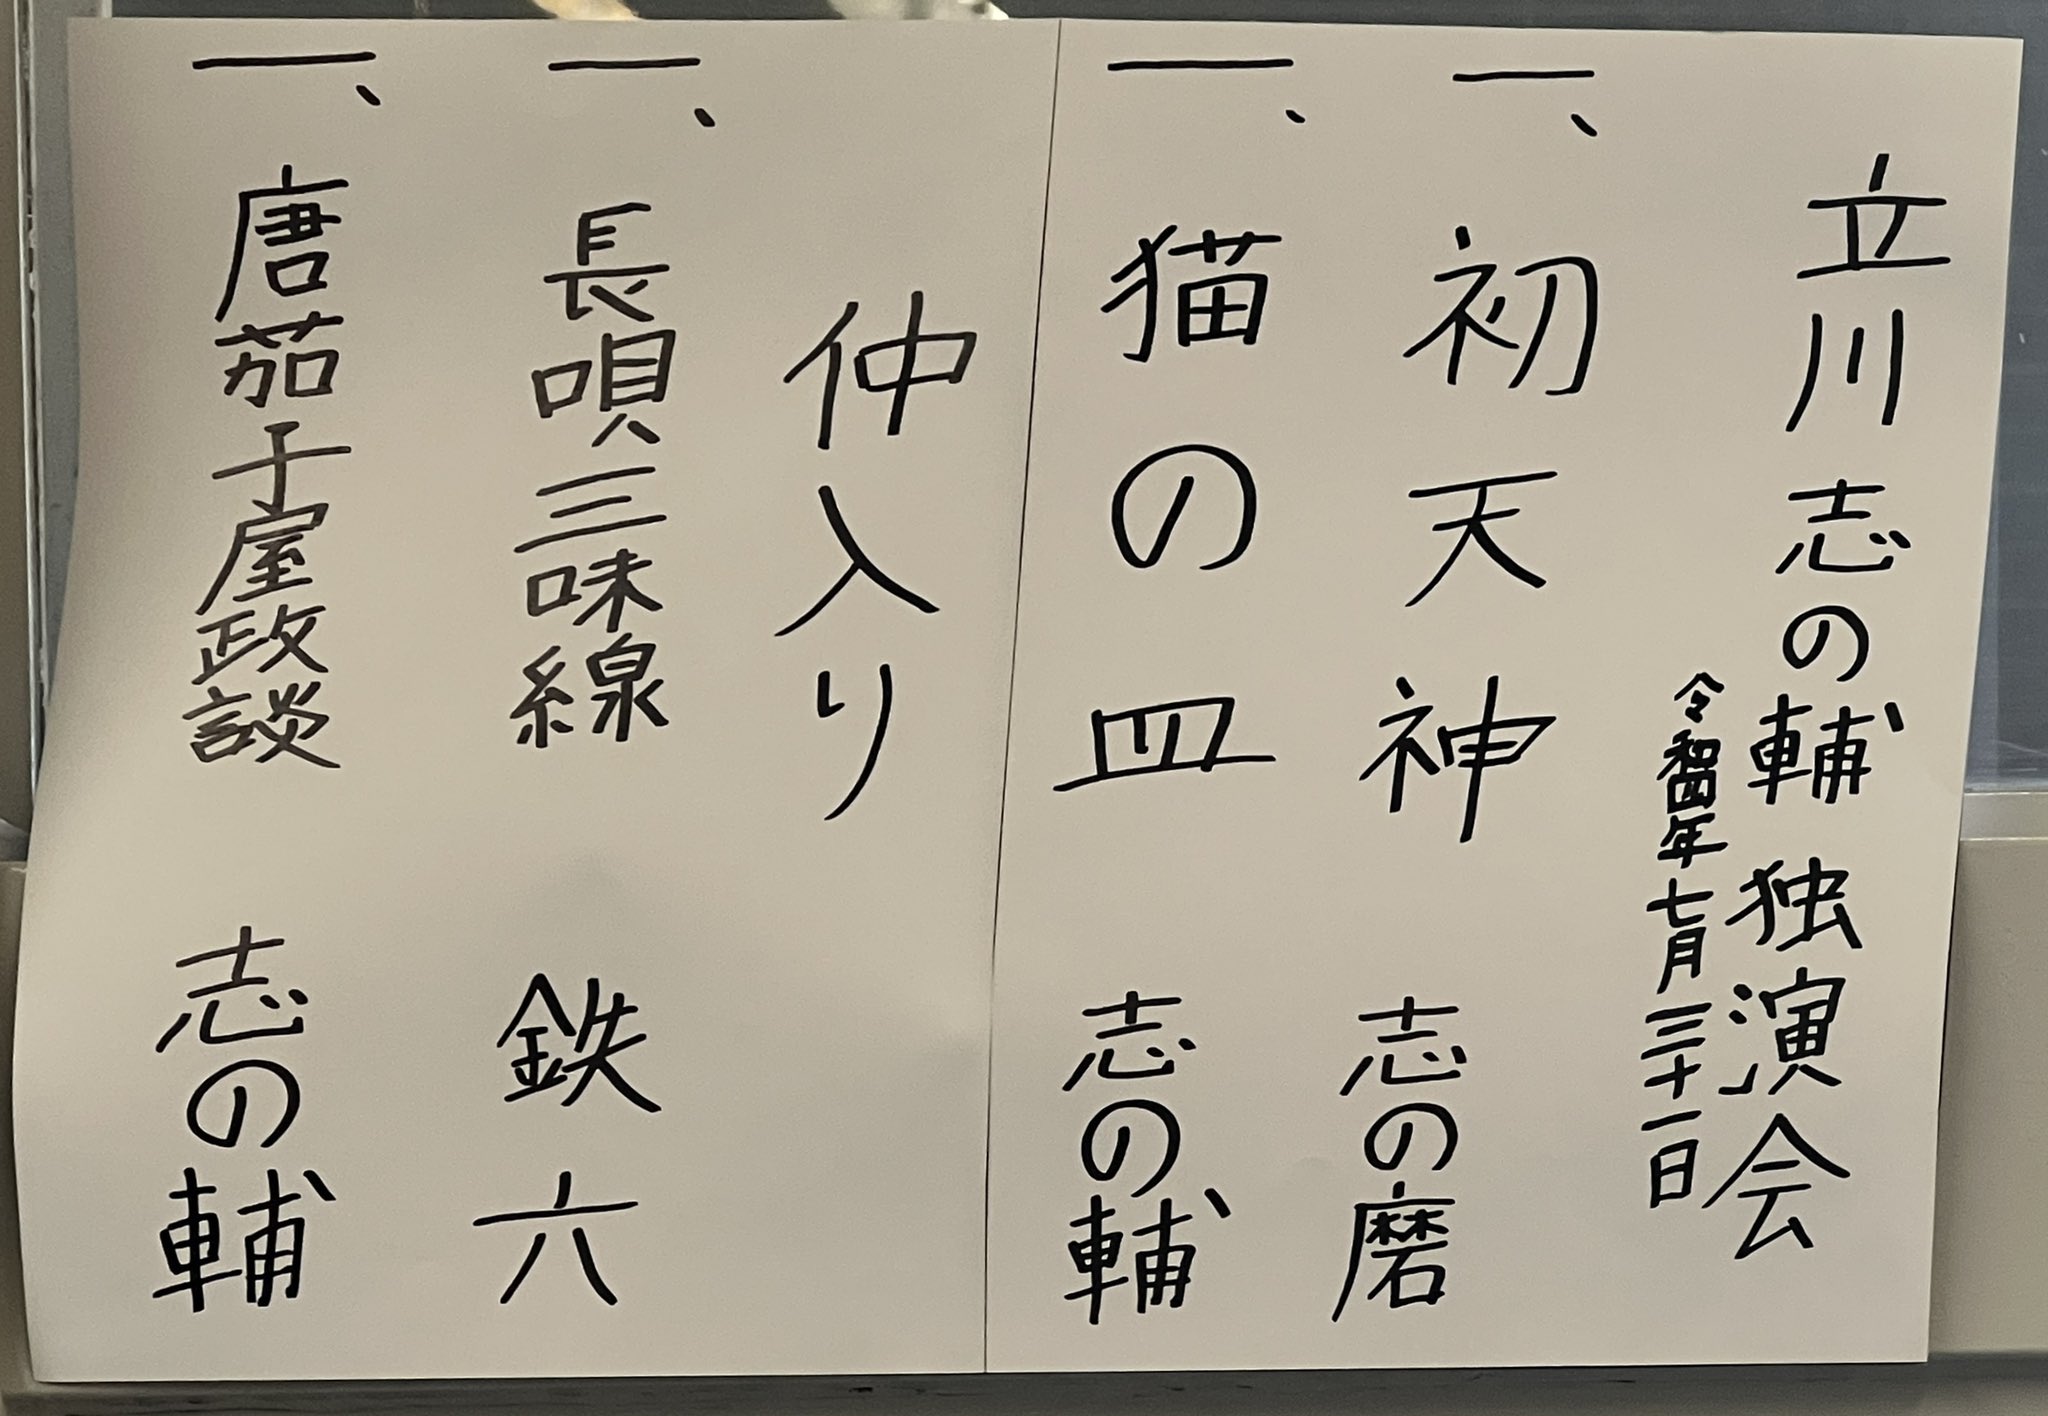 立川志の輔 独演会
令和四年七月三十一日
一、初天神 志の磨
一、猫の皿 志の輔
仲入り
一、長唄三味線 鉄六
一、唐茄子屋政談 志の輔